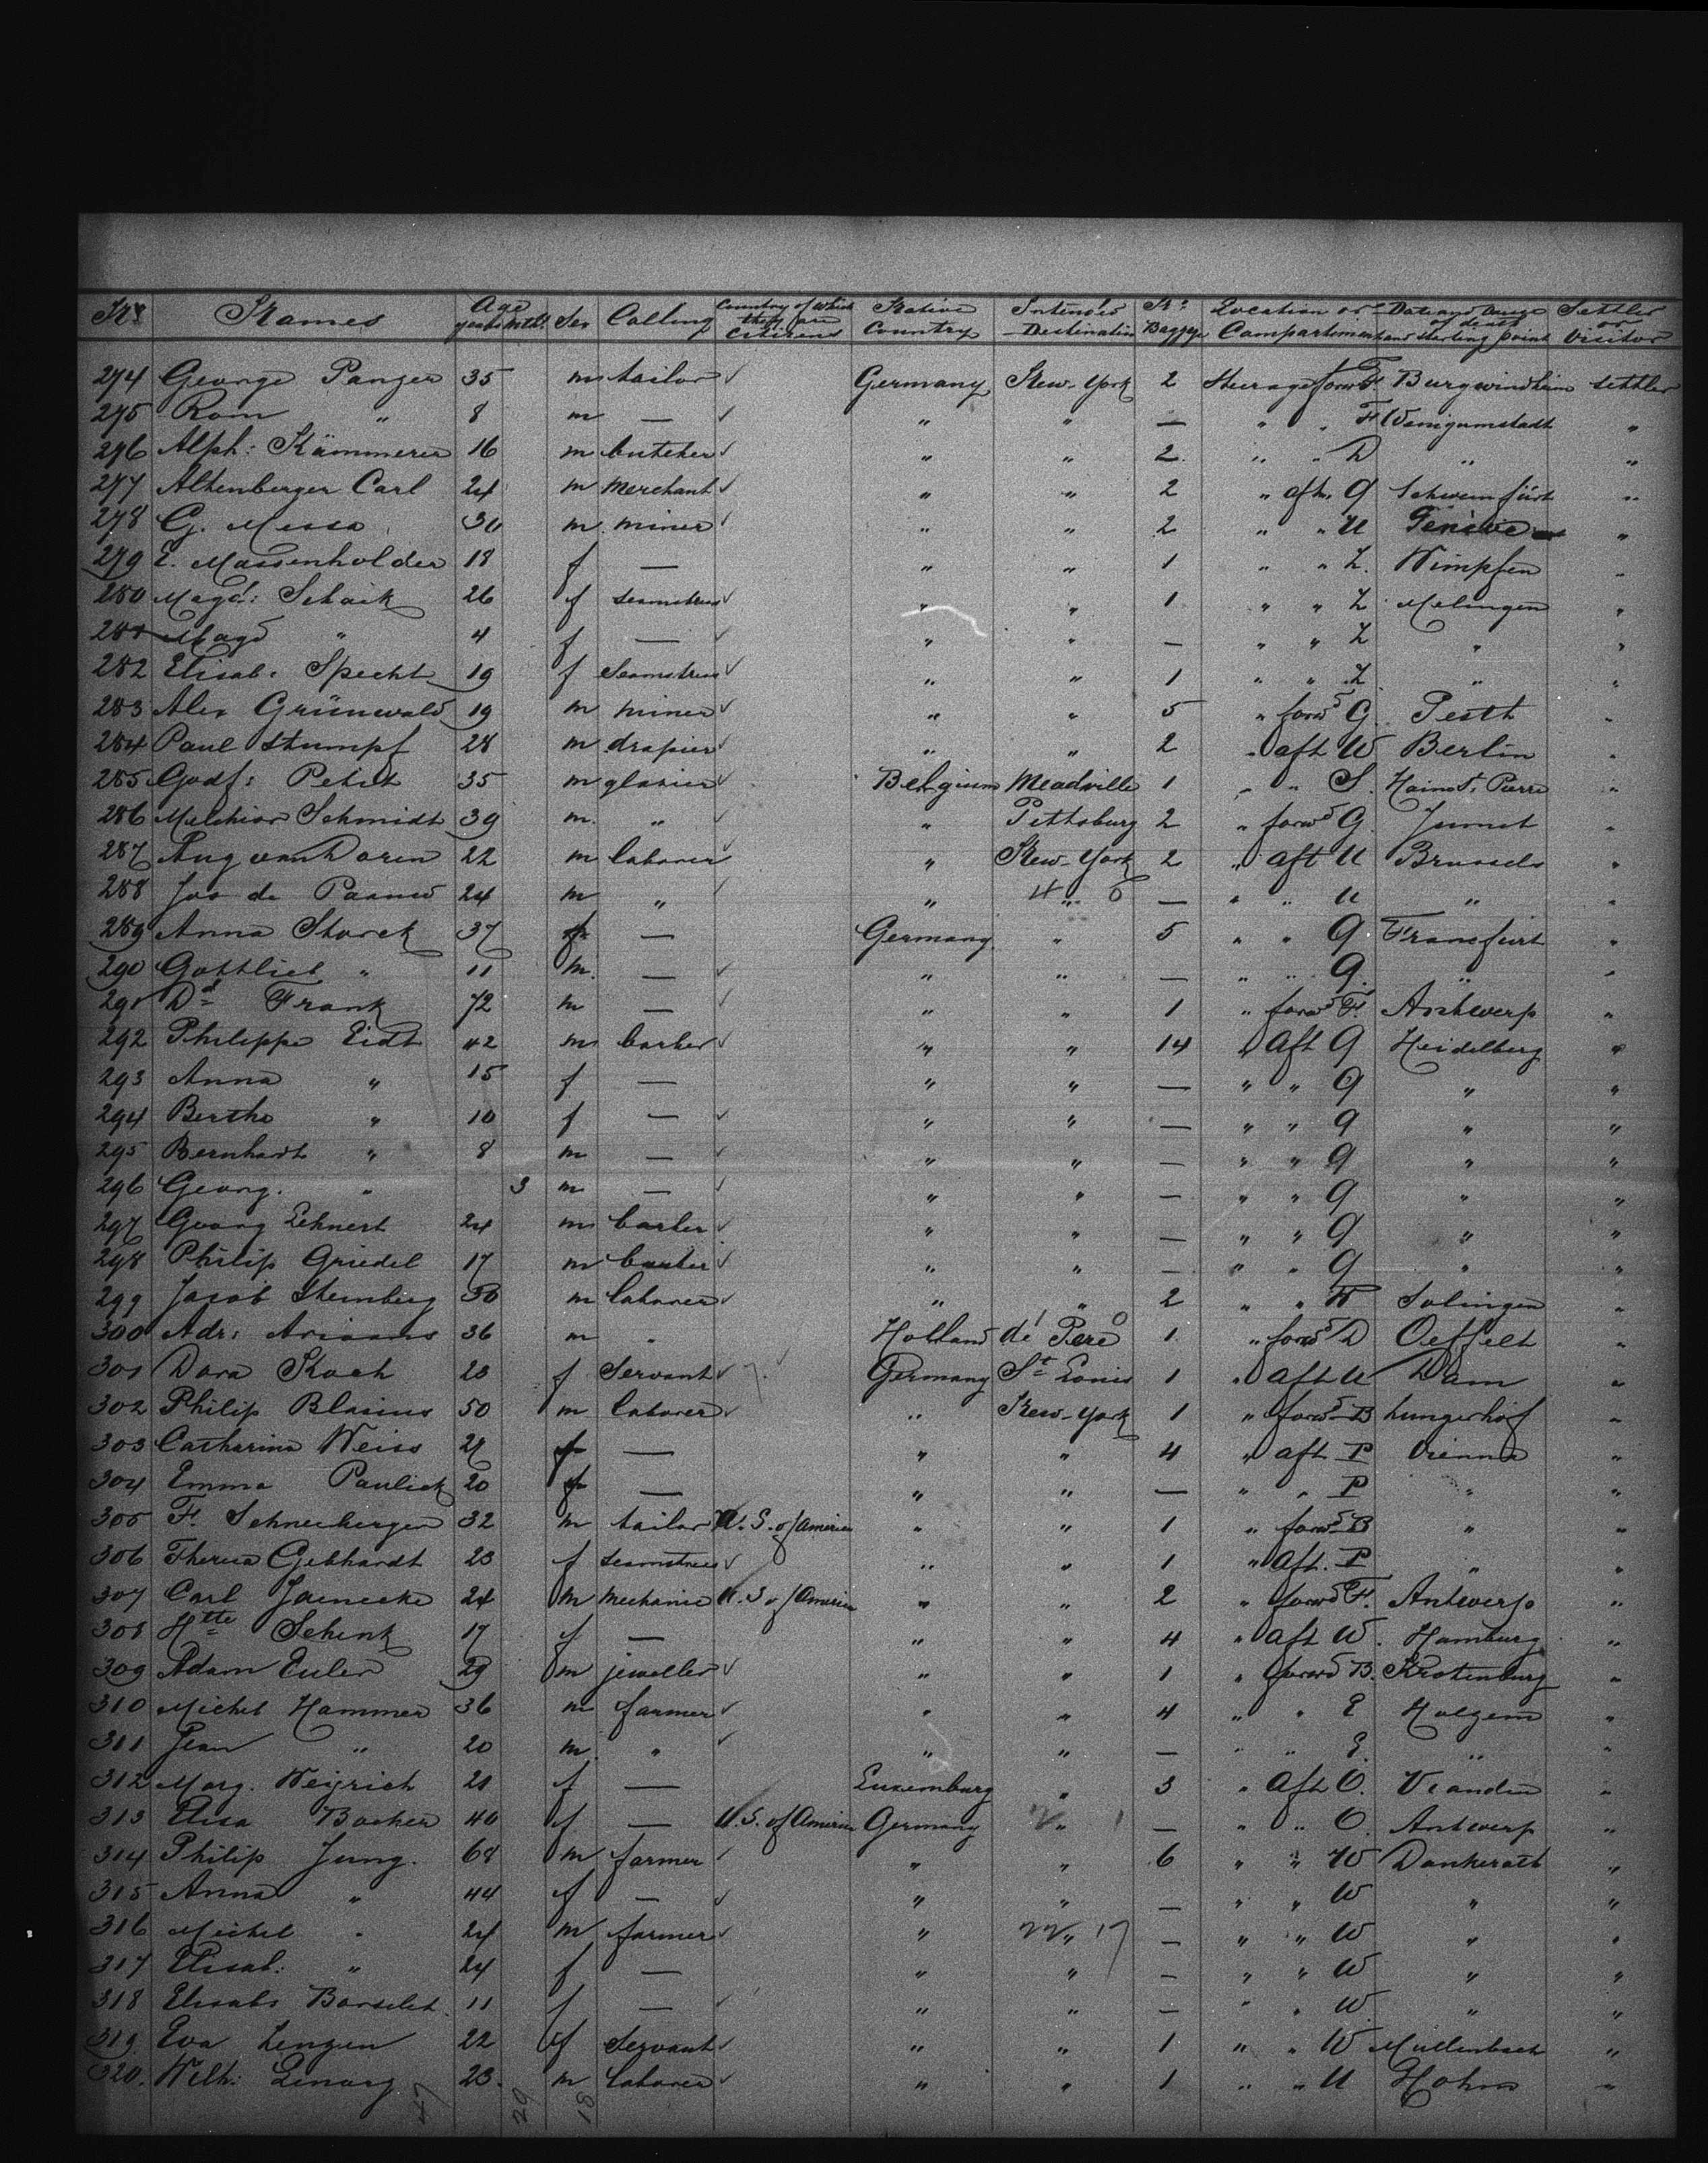 Nos Names Age years mths. Sex Calling Country of which they are Citizens Native Country Intended Destination No Baggage Location or Compartment Date and cause of death and starting point Settler or Visitor
274 George Panzer 35 m tailor ✓ Germany New-York 2 Steerage forwd F. Burgwindheim settler
275 Rom " 8 m — ✓ " " — " " F Wenigumstadt "
276 Alph: Kämmerer 16 m butcher ✓ " " 2 " " D " "
277 Altenberger Carl 24 m merchant ✓ " " 2 " aft. Q Schweinfürt "
278 G. Messa 30 m miner ✓ " " 2 " " U "
279 E. Massenholder 18 f — " " 1 " " Z. Wimpfen "
280 Magd: Schaik 26 f seamstress ✓ " " 1 " " Z Melingen "
281 Magd " 4 f — ✓ " " — " " Z " "
282 Elisab: Specht 19 f Seamstress ✓ " " 1 " " Z " "
283 Alex Grünwald 19 m miner ✓ " " 5 " forwd G. Pesth "
284 Paul Stumpf 28 m drapier ✓ " " 2 " aft W Berlin "
285 Godf: Petit 35 m glasier ✓ Belgium Meadville 1 " " S. Haine St. Pierre "
286 Melchior Schmidt 39 m. " ✓ " Pittsburg 2 " forwd G. Jumet "
287 Aug van Doren 22 m laborer ✓ " New-York 2 " aft U Brussels "
288 Jos de 24 m " ✓ " " — " " U " "
289 Anna Storck 37 f — Germany " 5 " " Q Francfurt "
290 Gottlieb " 11 m. — ✓ " " — " " Q. " "
291 Dd Frank 72 m — ✓ " " 1 " forwd F. Antwerp "
292 Philippe Eidt 42 m barber ✓ " " 14 " aft Q Heidelberg "
293 Anna " 15 f — " " — " " Q " "
294 Bertha " 10 f — ✓ " " — " " Q " "
295 Bernhardt " 8 m — ✓ " " — " " Q " "
296 Georg. " 3 m — ✓ " " — " " Q " "
297 Georg Lehnert 24 m barber ✓ " " — " " Q " "
298 Philip Griedel 17 m barber ✓ " " — " " Q " "
299 Jacob Sternberg 30 m laborer ✓ " " 2 " " W Solingen "
300 Adr: Ariaans 36 m " Holland de Pere 1 " forwd D Oeffelt "
301 Dora Koch 20 f Servant ✓ Germany St Louis 1 " aft U Dam "
302 Philip Blasius 50 m laborer ✓ " New-York 1 " forwd B Lungerhof "
303 Catharina Weiss 27 f — " " 4 " aft P Vienna "
304 Emma Paulick 20 f — " " — " " P " "
305 F. Schneeberger 32 m tailor U. S. of America " " 1 " forwd B " "
306 Theresa Gebhardt 23 f seamstress ✓ " " 1 " aft. P " "
307 Carl Jaenecke 24 m mechanic U. S. of America " " 2 " forwd F. Antwerp "
308 Htte Schenk 17 f — " " 4 " aft W. Hamburg "
309 Adam Euler 29 m jeweller ✓ " " 1 " forwd B. Krotenburg "
310 Michel Hammer 36 m farmer ✓ " " 4 " " E Holzem "
311 Jean " 20 m. " ✓ " " — " " E. " "
312 Marg. Weyrich 21 f — Luxemburg " 3 " aft O. Vianden "
313 Elisa Backer 40 f — U. S. of America Germany " — " " O. Antwerp "
314 Philip Jung. 68 m farmer ✓ " " 6 " " W Dankerath "
315 Anna " 44 f — ✓ " " — " " W " "
316 Michel " 24 m farmer ✓ " " — " " W " "
317 Elisab: " 24 f — " " — " " W " "
318 Elisab: Borselet 11 f — ✓ " " — " " W " "
319. Eva Lenzen 22 f Servant ✓ " " 1 " " W Mullenbach "
320. Wilh: Lenarz 23. m laborer ✓ " " 1 " " U Hohn "
47 29 18